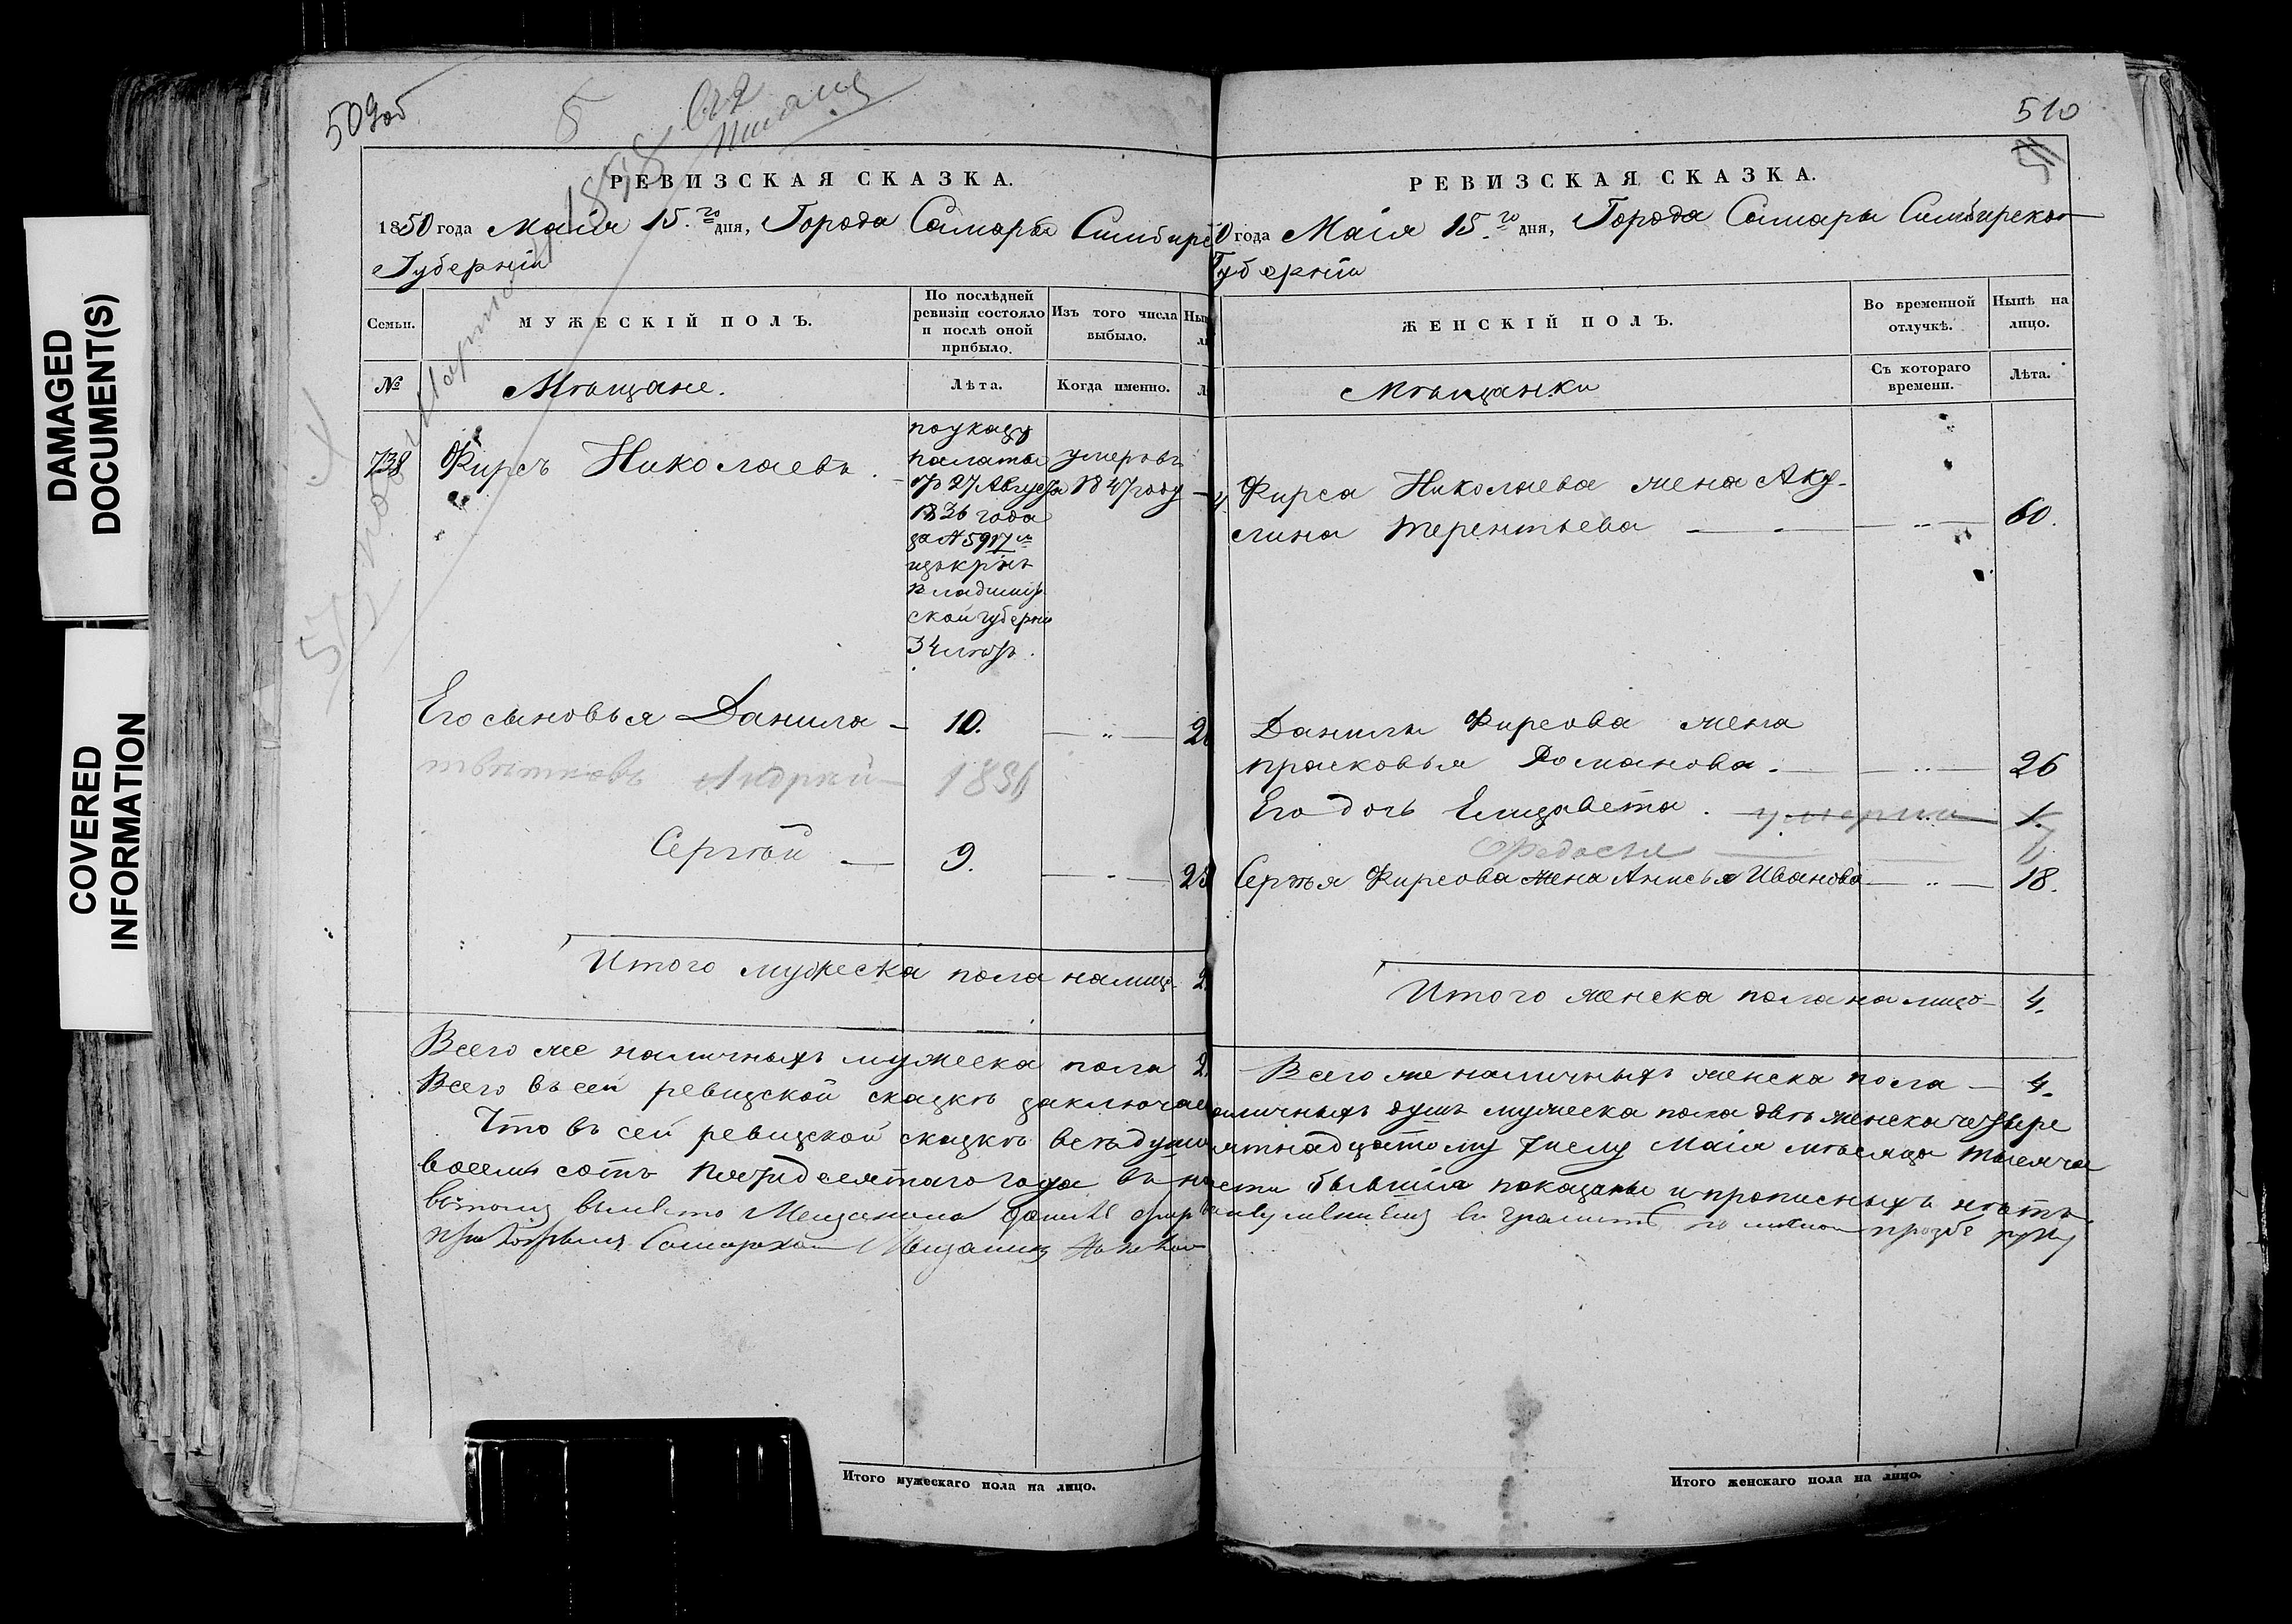 DAMAGED
DOCUMENT(S)
COVERED
INFORMATION
509об
5
РЕВИЗСКАЯ СКАЗКА.
1850 года Маія 15.го дня, Города Самары Симбирс
Губерніи
Семьи.
МУЖЕСКІЙ ПОЛЪ.
По послѣдней
ревизіи состояло
и послѣ оной
прибыло.
Изъ того числа
выбыло.
№
Мѣщане.
Лѣта.
Когда именно.
738
Фирсъ Николаевъ
по указу
палаты
отъ 27 Августа
1836 года
за № 5917 м
изъ крѣ
Владимир
ской губерніи
34 лѣтъ.
умеръ въ
1847 году
Его сыновья Данила
10.
Андрей
Сергѣй
9.
Итого мужеска пола налицо
2
Всего же наличныхъ мужеска пола 2.
Всего въ сей ревизской сказкѣ заключае
Что въ сей ревизской сказкѣ всѣ души
восемь сотъ пятидесятаго года въ на
510
РЕВИЗСКАЯ СКАЗКА.
0 года Маія 15.го дня, Города Самары Симбирской
Губерніи
ЖЕНСКІЙ ПОЛЪ.
Во временной
отлучкѣ.
Нынѣ на
лицо.
Мѣщанки
Съ котораго
времени.
Лѣта.
Фирса Николаева жена Аку-
лина Терентьева
60.
Данилы Фирсова жена
Прасковья Романова.
26
Его дочь Елизавета. умерла 1.
Федосья
Сергѣя Фирсова жена Анисья Иванова
18.
Итого женска пола на лицо 4.
Всего же наличныхъ женска пола 4.
аличныхъ душъ мужеска пола двѣ женска четыре
ятнадцатому числу Маія мѣсяца тысяча
сти бывшія показаны и прописныхъ нѣтъ.
Итого мужескаго пола на лицо.
Итого женскаго пола на лицо.